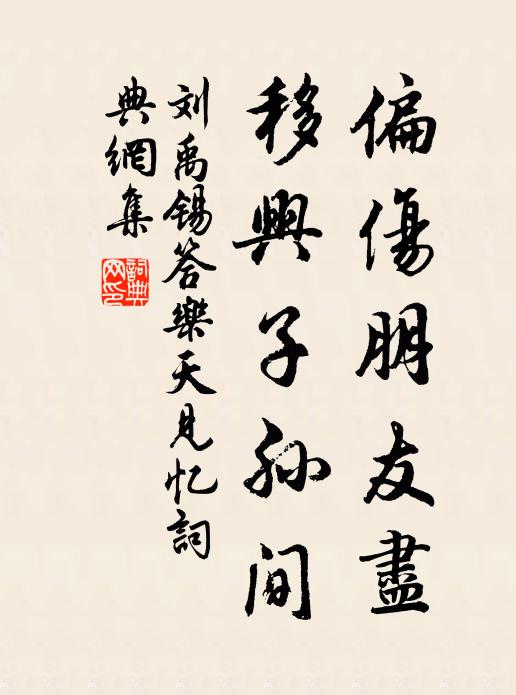 偏傷朋友盡
移興子孙间
刘禹锡答樂天見忆詞
典網集
詞典网印